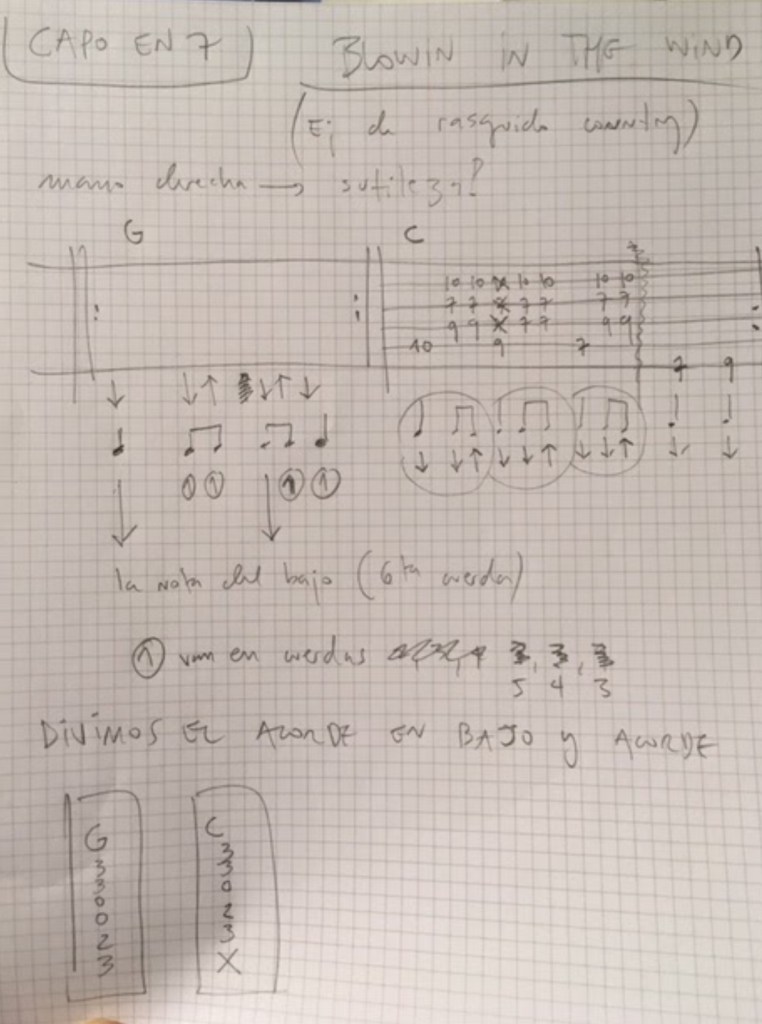 CAPO EN 7
BLOWIN IN THE WIND
(Ej de rasguido country)
mano derecha → sutileza!
G C
10 10 10 10 10 10
7 7 X 7 7 7 7
9 9 X 7 7 9 9
10 9 7
7 9
↓ ↓↑ ↓↑ ↓
↓ ↓↑ ↓ ↓↑ ↓ ↓↑ ↓ ↓
① ① ① ①
la nota del bajo (6ta cuerda)
① van en cuerdas
5 4 3
DIVIMOS EL ACORDE EN BAJO y ACORDE
G
3
3
0
0
2
3
C
3
3
0
2
3
X